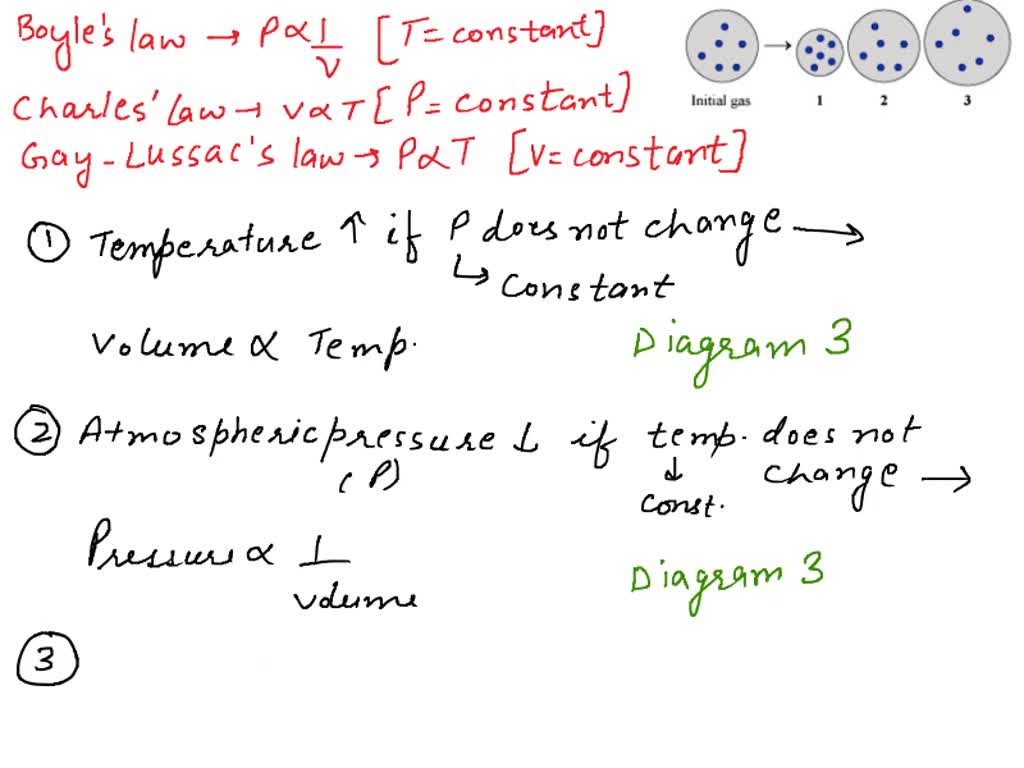 Boyle's law → P∝1/V [T= constant]
Initial gas 1 2 3
Charles' law → V∝T [P= constant]
Gay-Lussac's law → P∝T [V= constant]
① Temperature ↑ if P does not change →
↳ constant
Volume ∝ Temp.
Diagram 3
② Atmospheric pressure ↓ if temp. does not
(P) ↓ change →
const.
Pressure ∝ 1/volume
Diagram 3
③